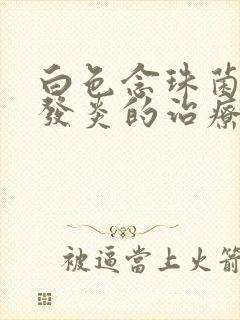 白色念珠菌
發炎的治療
被逼當上火箭